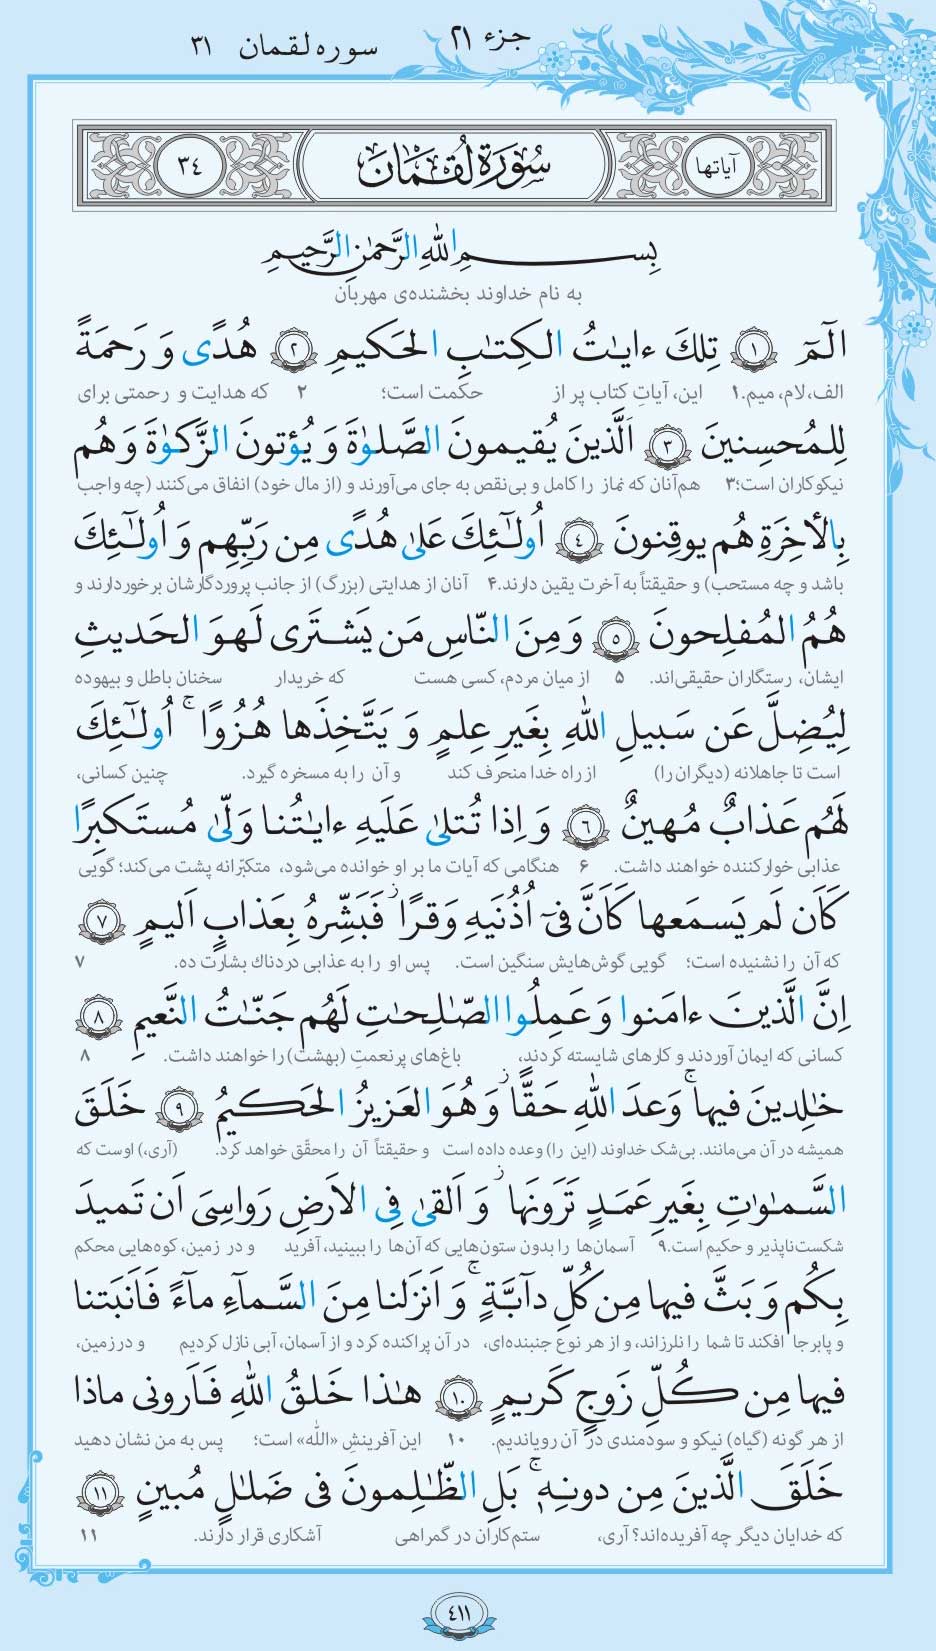 جزء ۲۱
سوره لقمان ۳۱
آیاتها
سُورَةُ لُقمَان
۳۴
بِسمِ اللّٰهِ الرَّحمٰنِ الرَّحيمِ
به نام خداوند بخشنده‌ی مهربان
الٓمٓ ﴿۱﴾ تِلكَ ءايـٰتُ الكِتـٰبِ الحَكيمِ ﴿۲﴾ هُدًى وَ رَحمَةً
الف، لام، میم.۱ این، آیاتِ کتاب پر از حکمت است؛ ۲ که هدایت و رحمتی برای
لِلمُحسِنينَ ﴿۳﴾ اَلَّذينَ يُقيمونَ الصَّلوٰةَ وَ يُؤتونَ الزَّكوٰةَ وَ هُم
نیکوکاران است؛۳ هم‌آنان که نماز را کامل و بی‌نقص به جای می‌آورند و (از مال خود) انفاق می‌کنند (چه واجب
بِالأخِرَةِ هُم يوقِنونَ ﴿۴﴾ اُولـٰٓئِكَ عَلىٰ هُدًى مِن رَبِّهِم وَ اُولـٰٓئِكَ
باشد و چه مستحب) و حقیقتاً به آخرت یقین دارند.۴ آنان از هدایتی (بزرگ) از جانب پروردگارشان برخوردارند و
هُمُ المُفلِحونَ ﴿۵﴾ وَ مِنَ النّاسِ مَن يَشتَرى لَهوَ الحَديثِ
ایشان، رستگاران حقیقی‌اند. ۵ از میان مردم، کسی هست که خریدار سخنان باطل و بیهوده
لِيُضِلَّ عَن سَبيلِ اللّٰهِ بِغَيرِ عِلمٍ وَ يَتَّخِذَها هُزُوًا ۚ اُولـٰٓئِكَ
است تا جاهلانه (دیگران را) از راه خدا منحرف کند و آن را به مسخره گیرد. چنین کسانی،
لَهُم عَذابٌ مُهينٌ ﴿۶﴾ وَ اِذا تُتلىٰ عَلَيهِ ءايـٰتُنا وَلّىٰ مُستَكبِرًا
عذابی خوارکننده خواهند داشت. ۶ هنگامی که آیات ما بر او خوانده می‌شود، متکبّرانه پشت می‌کند؛ گویی
كَاَن لَم يَسمَعها كَاَنَّ فىٓ اُذُنَيهِ وَقرًا ۖ فَبَشِّرهُ بِعَذابٍ اَليمٍ ﴿۷﴾
که آن را نشنیده است؛ گویی گوش‌هایش سنگین است. پس او را به عذابی دردناك بشارت ده. ۷
اِنَّ الَّذينَ ءامَنوا وَ عَمِلُوا الصّـٰلِحـٰتِ لَهُم جَنّـٰتُ النَّعيمِ ﴿۸﴾
کسانی که ایمان آوردند و کارهای شایسته کردند، باغ‌های پرنعمتِ (بهشت) را خواهند داشت. ۸
خـٰلِدينَ فيها ۚ وَعدَ اللّٰهِ حَقًّا ۖ وَ هُوَ العَزيزُ الحَكيمُ ﴿۹﴾ خَلَقَ
همیشه در آن می‌مانند. بی‌شک خداوند (این را) وعده داده است و حقیقتاً آن را محقّق خواهد کرد. (آری،) اوست که
السَّمـٰوٰتِ بِغَيرِ عَمَدٍ تَرَونَها ۖ وَ اَلقىٰ فِى الاَرضِ رَواسِىَ اَن تَميدَ
شکست‌ناپذیر و حکیم است.۹ آسمان‌ها را بدون ستون‌هایی که آن‌ها را ببینید، آفرید و در زمین، کوه‌هایی محکم
بِكُم وَ بَثَّ فيها مِن كُلِّ دآبَّةٍ ۚ وَ اَنزَلنا مِنَ السَّمآءِ مآءً فَاَنبَتنا
و پابرجا افکند تا شما را نلرزاند، و از هر نوع جنبنده‌ای، در آن پراکنده کرد و از آسمان، آبی نازل کردیم و در زمین،
فيها مِن كُلِّ زَوجٍ كَريمٍ ﴿۱۰﴾ هـٰذا خَلقُ اللّٰهِ فَاَرونى ماذا
از هر گونه (گیاه) نیکو و سودمندی در آن رویاندیم. ۱۰ این آفرینشِ «اللّٰه» است؛ پس به من نشان دهید
خَلَقَ الَّذينَ مِن دونِهِ ۚ بَلِ الظّـٰلِمونَ فى ضَلـٰلٍ مُبينٍ ﴿۱۱﴾
که خدایان دیگر چه آفریده‌اند؟ آری، ستم‌کاران در گمراهی آشکاری قرار دارند. ۱۱
۴۱۱